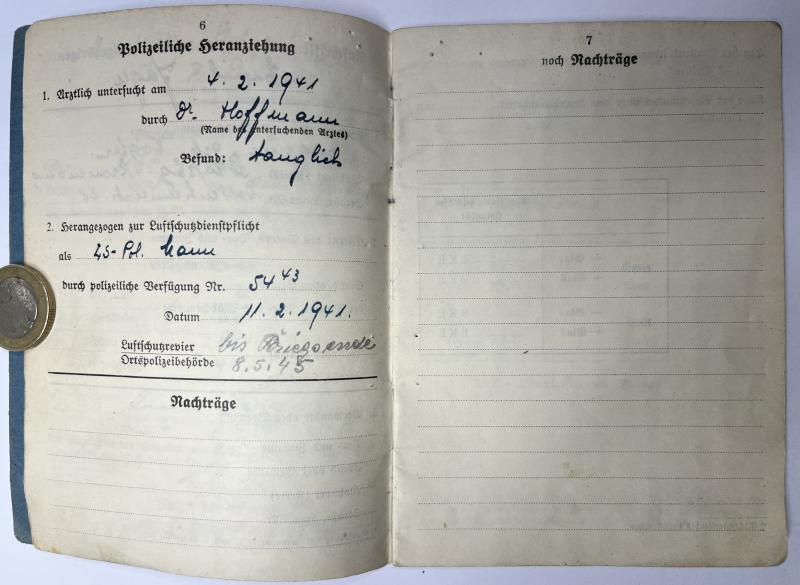 6
Polizeiliche Heranziehung
1. Ärztlich untersucht am 4. 2. 1941
durch Dr. Hoffmann
(Name des untersuchenden Arztes)
Befund: tauglich
2. Herangezogen zur Luftschutzdienstpflicht
als LS-Pol. Mann
durch polizeiliche Verfügung Nr. 54 43
Datum 11. 2. 1941.
Luftschutzrevier bis Kriegsende
Ortspolizeibehörde 8.5.45
Nachträge
7
noch Nachträge